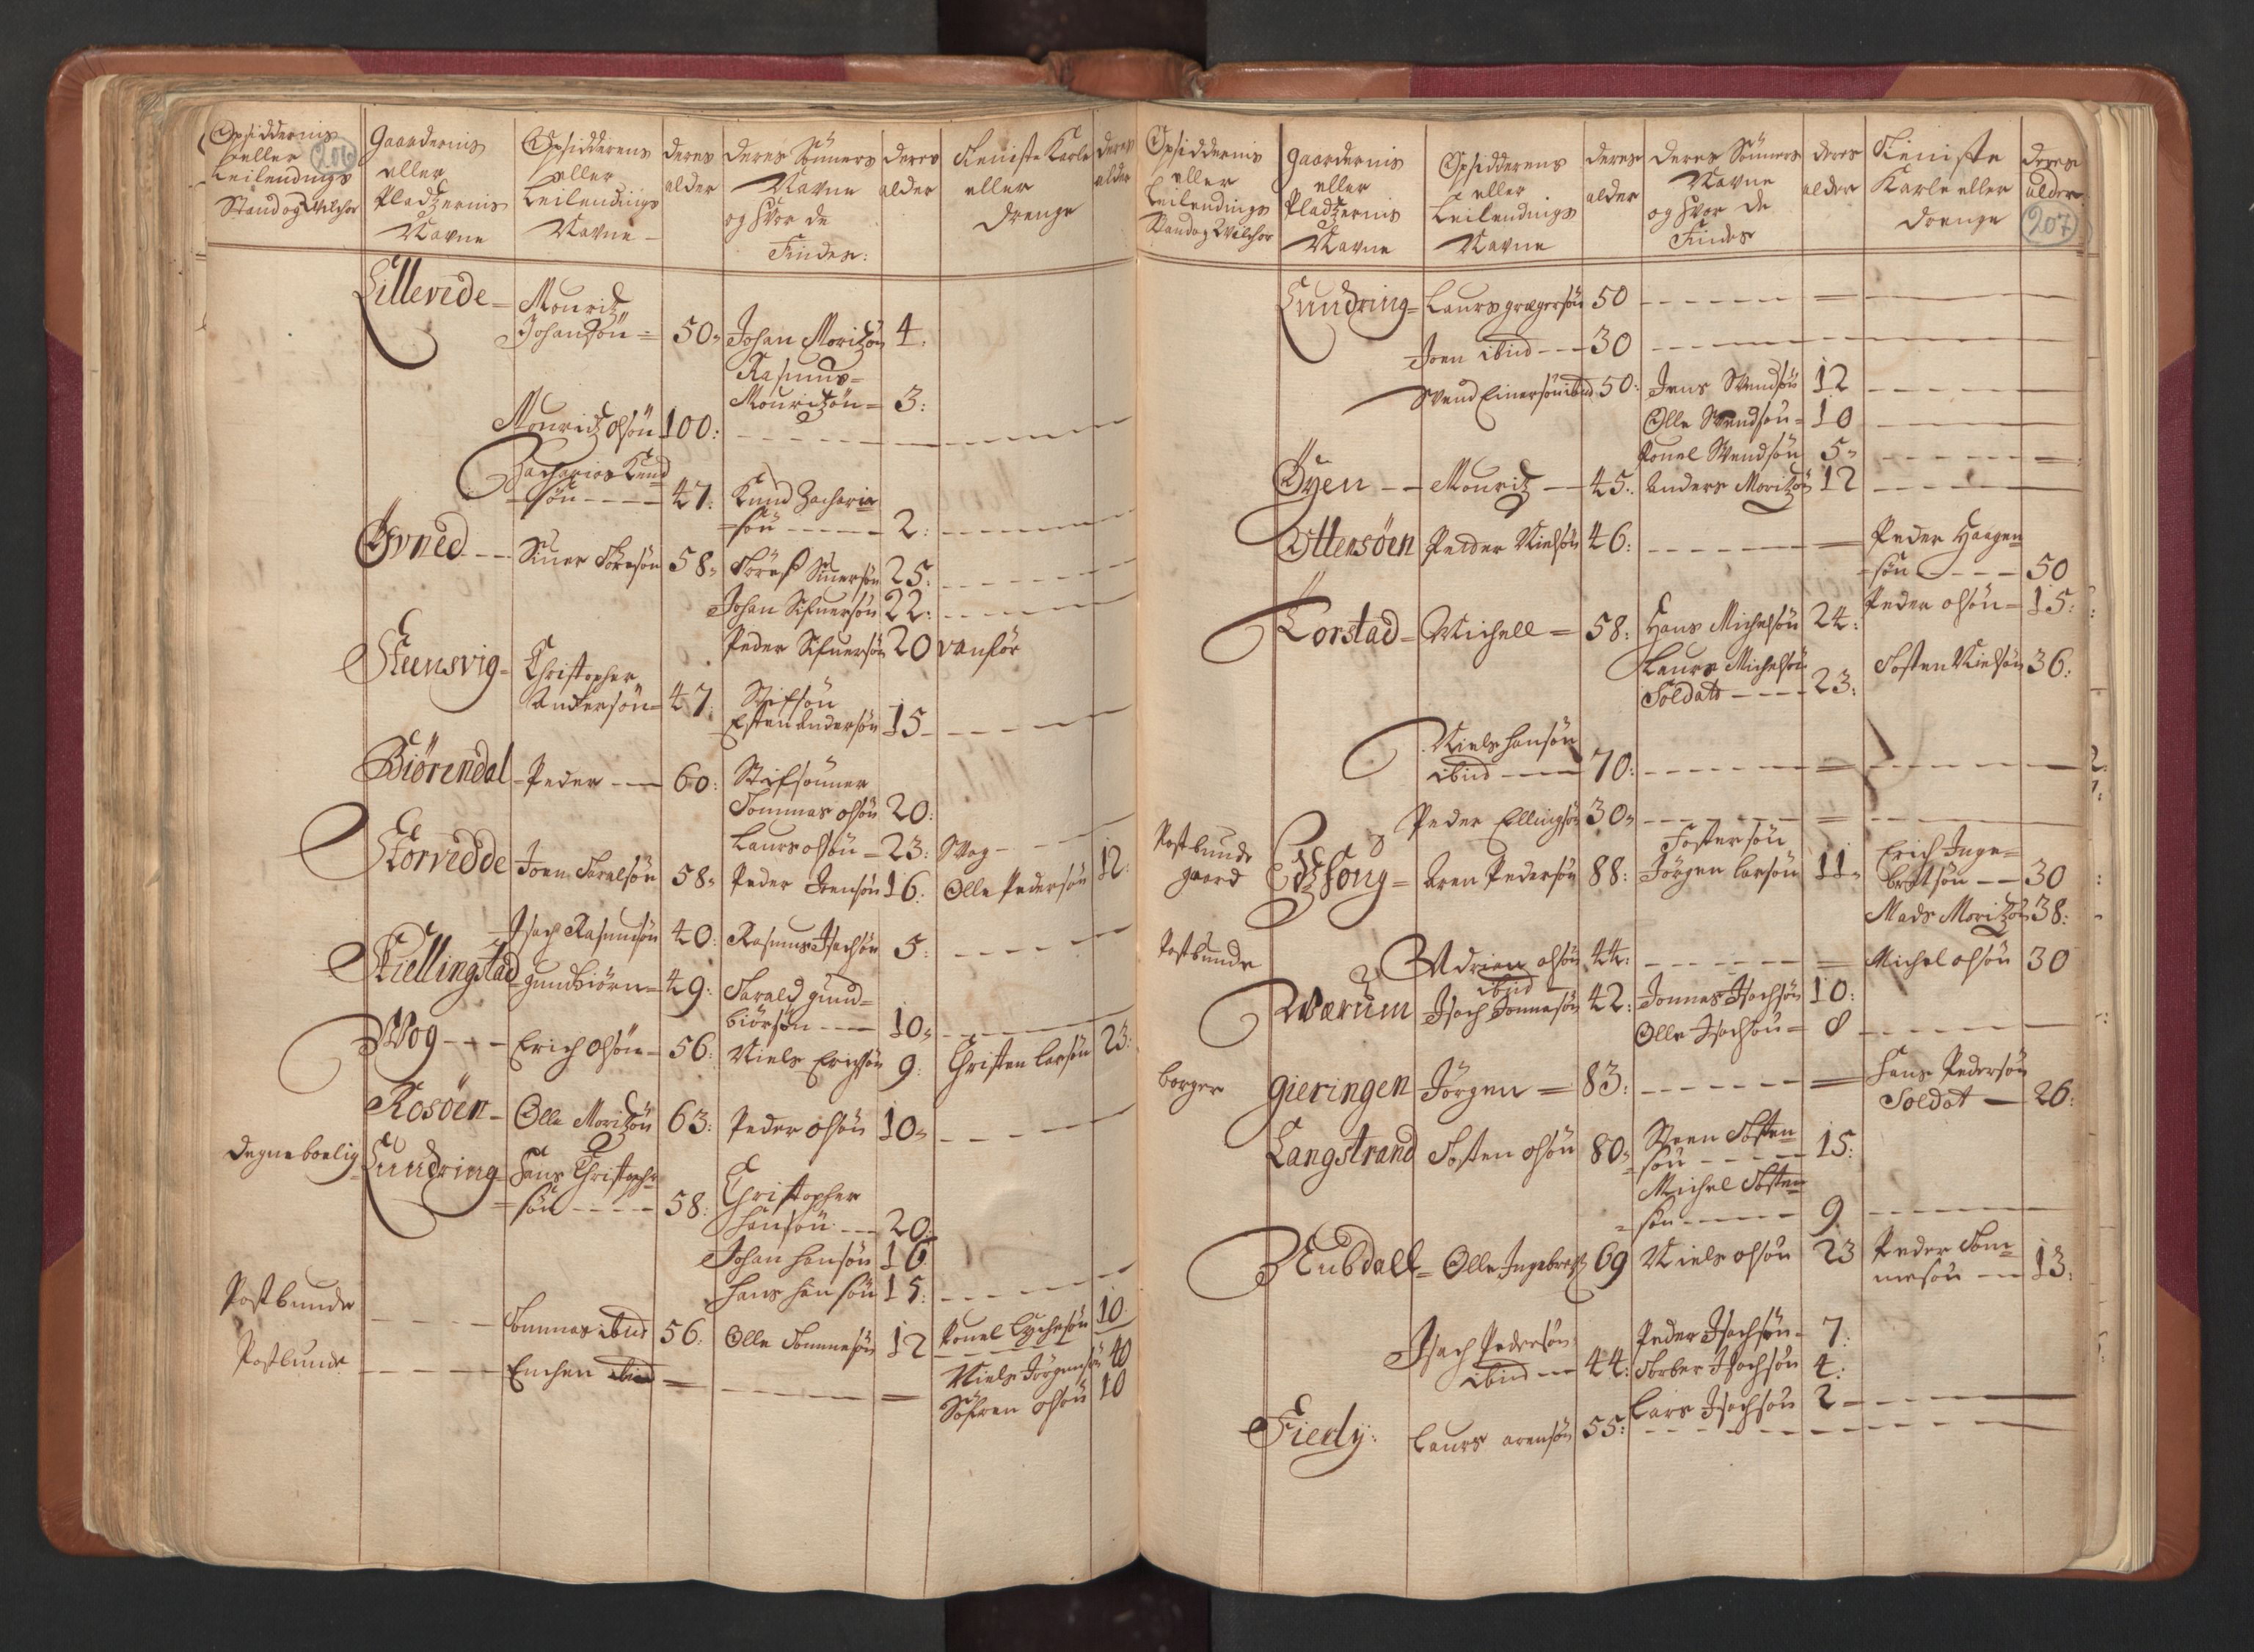 206
Opsiddernis
eller
Leilendings
Stand og Vilchor
Gaardernis
eller
Pladzernis
Navne
Opsidderens
eller
Leilendings
Navne
deres
alder
deres Sönners
Navne
og hvor de
Findes:
deres
alder
Tieniste Karle
eller
drenge
deres
alder
Lillevede = Mouritz
Johansön = 50 Johan Moritzön 4.
Rasmus =
Mouritzön = 3:
Mouritz olsön 100:
Zacharias Knud
sön 47: Knud Zacharia
sön 2:
Övned Siver Toresön 58 Töres Siversön 25:
Johan Sifuersön 22:
Peder Sifuersön 20 vanför
Steensvig = Christopher
Andersön = 47: Stifsön
Esten Andersön 15
Biörendal Peder 60: Stifsönner
Tommas olsön 20:
Laurs olsön 23: Vag
Storvedde Joen Taralsön 58 Peder Jensön 16: Olle Pedersön 12:
Isach Rasmusön 40: Rasmus Isachsön 5:
Skiellingstad gundbiörn = 49: Tarald gund=
biörsön 10
Wog Erich olsön 56: Niels Erichsön 9: Christen Larsön 23:
Rosöen Olle Moritzön 63: Peder olsön 10
degneboelig Lundring Hans Christopher
sön 58: Christopher
hansön 20
Johan hansön 16
hans hansön 15:
Postbunde Tommas ibid 56: Olle Tommesön 12 Pouel Lychesön 10
Postbunde Enchen ibid Niels Jörgensön 40
Söfren olsön 10
207
Opsiddernis
eller
Leilendings
Stand og Vilchor
Gaardernis
eller
Pladzernis
Navne
Opsidderens
eller
Leilendings
Navne
deres
alder
deres Sönners
Navne
og hvor de
Findes
deres
alder
Tieniste
Karle eller
drenge
deres
alder
Lundring = Laurs gregersön 50
Joen ibid 30
Svend Einersön ibid 50: Jens Svendsön 12
Olle Svendsön = 10
Pouel Svendsön 5
Öyen Mouritz 45: Anders Moritzön 12
Ottersöen Peder Nielsön 46: Peder Haagen
sön 50
Peder olsön = 15:
Korstad = Michell = 58: Hans Michelsön 24:
Laurs Michelsön
Soldat 23: Tosten Nielsön 36:
Niels hansön
ibid 70:
Peder Ellingsön 30
Postbunde
gaard Edzsong = Aren Pedersön 88: Fostersön
Jörgen larsön 11 Erich Inge=
bretsön 30
Mads Moritzön 38:
Postbunde Adrian olsön 44: Michel olsön 30
ibid
Wærum Isach Jonnesön 42: Jonnas Isachsön 10:
Olle Isachsön = 8
borger gieringen Jörgen = 83: Hans Pedersön
Soldat 26:
Langstrand Tosten olsön 80 Steen Tosten
sön 15:
Michel Tosten
sön 9
Nubdall = Olle Ingebret 69 Niels olsön 23 Peder Tom=
mesön 13:
Isach Pedersön
ibid 44: Peder Isachsön 7:
Torber Isachsön 4:
Lars Isachsön 2
Fiedy: Laurs arensön 55: